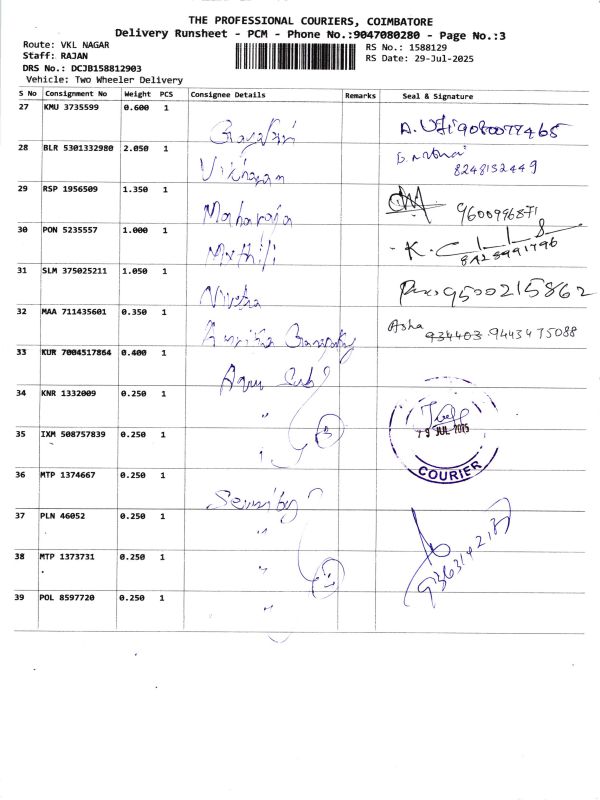 THE PROFESSIONAL COURIERS, COIMBATORE
Delivery Runsheet - PCM - Phone No.:9047080280 - Page No.:3
Route: VKL NAGAR
RS No.: 1588129
Staff: RAJAN
RS Date: 29-Jul-2025
DRS No.: DCJB158812903
Vehicle: Two Wheeler Delivery
S No Consignment No Weight PCS Consignee Details Remarks Seal & Signature
27 KMU 3735599 0.600 1
9080077465
28 BLR 5301332980 2.050 1
8248132449
29 RSP 1956509 1.350 1
Maharaja 9600996871
30 PON 5235557 1.000 1
Mythili
31 SLM 375025211 1.050 1
Nivetha 9500215862
32 MAA 711435601 0.350 1
Asha
934403 9443475088
33 KUR 7004517864 0.400 1
34 KNR 1332009 0.250 1
"
35 IXM 508757839 0.250 1
3
JUL 2025
COURIER
36 MTP 1374667 0.250 1
37 PLN 46052 0.250 1
"
38 MTP 1373731 0.250 1
"
39 POL 8597720 0.250 1
"